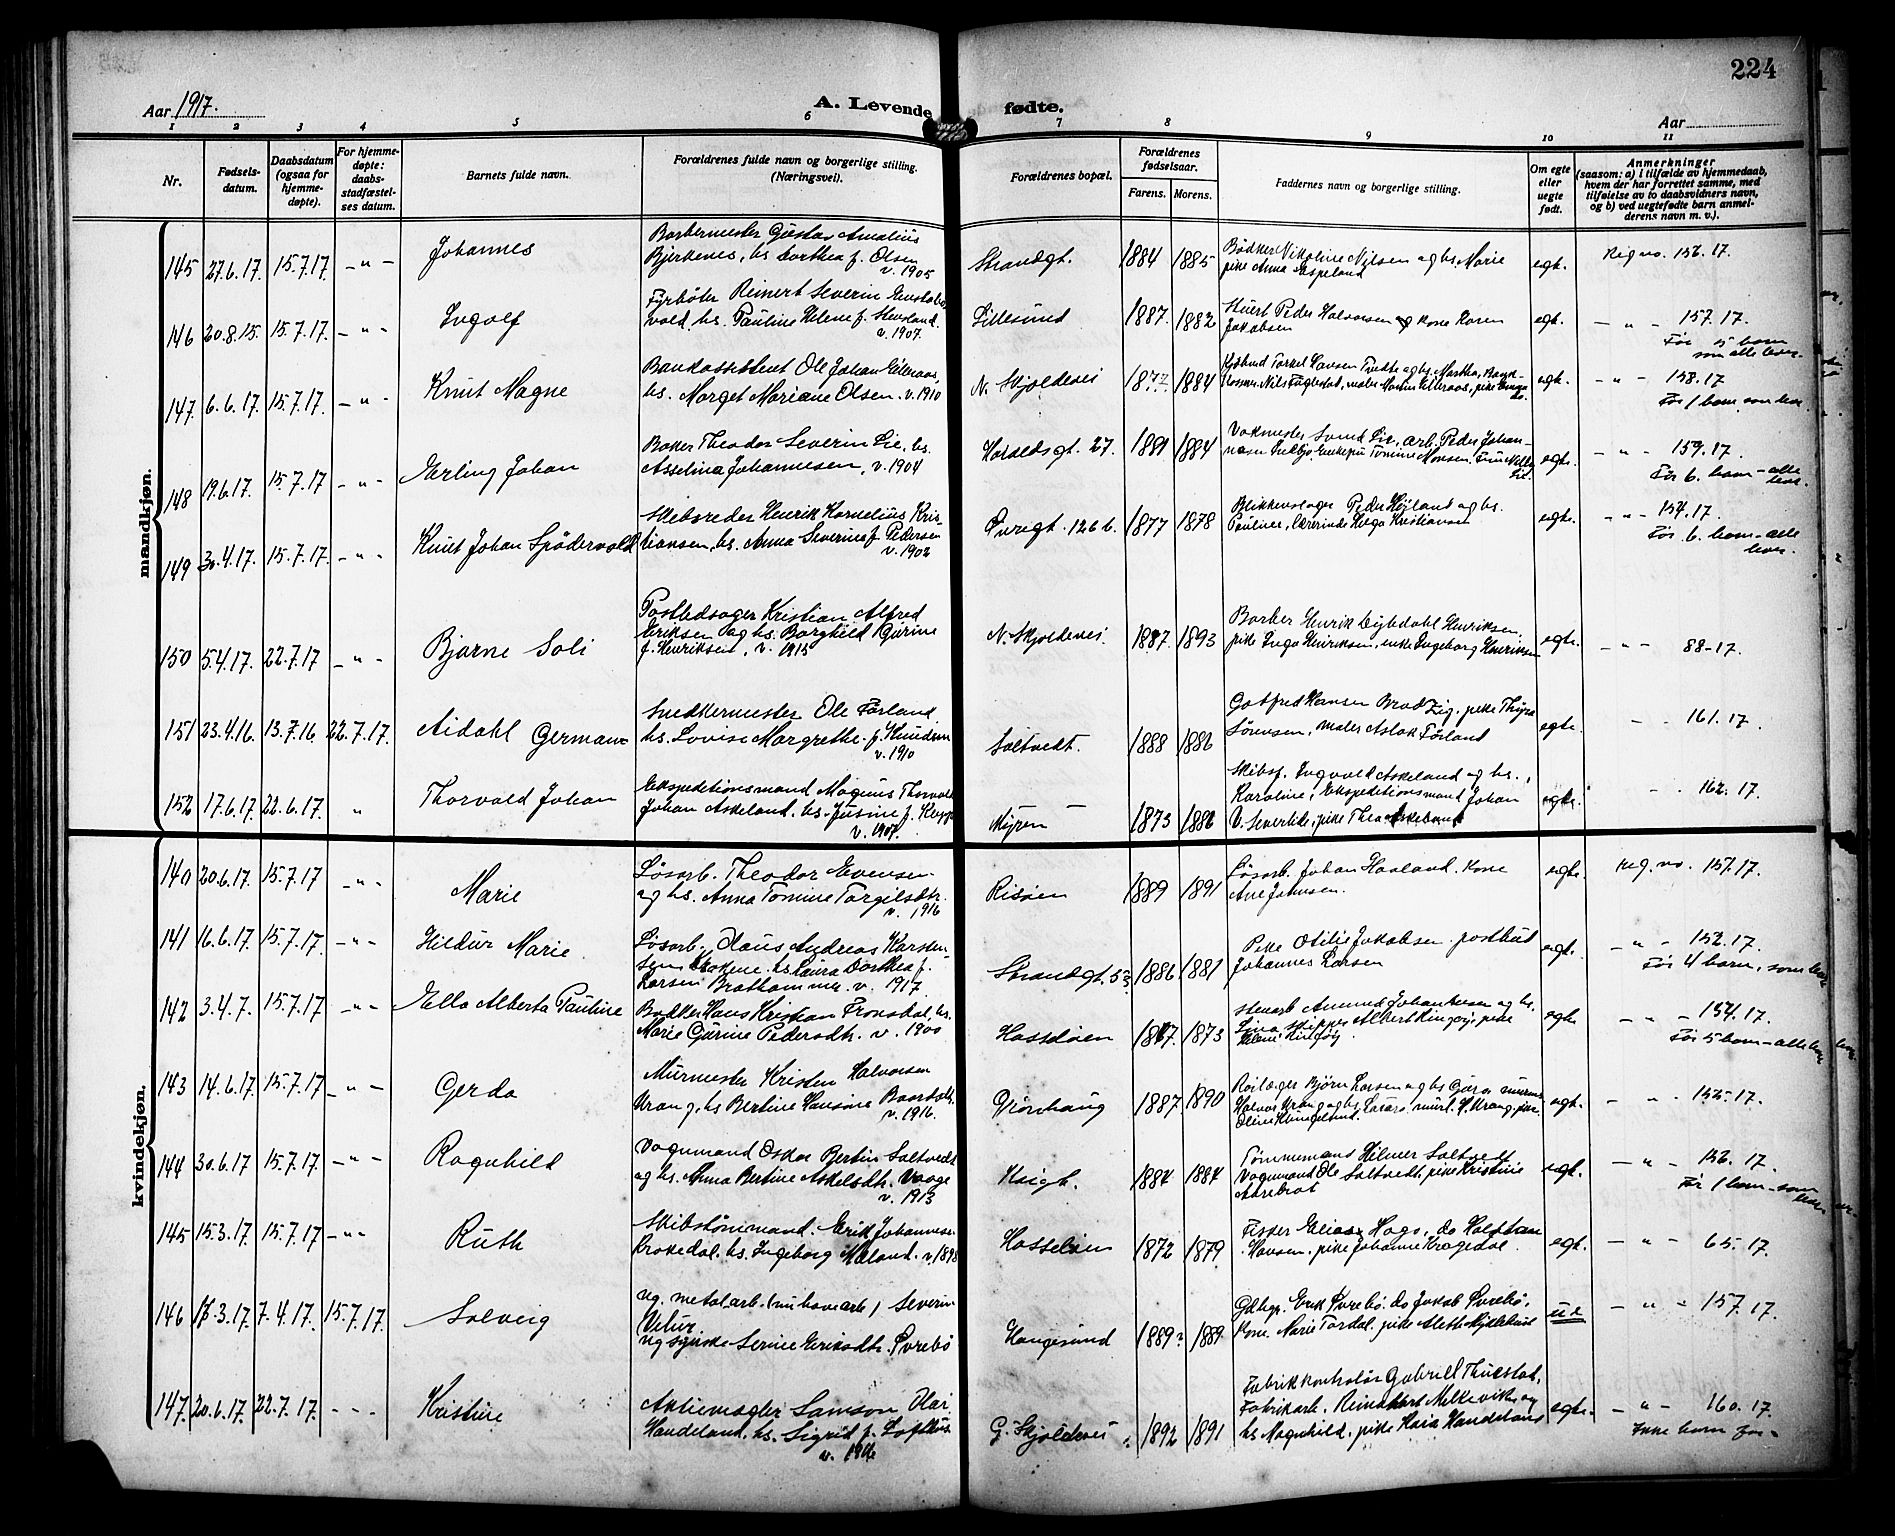 224
Aar 1917.
A. Levende fødte.
Aar
1 2 3 4 5 6 7 8 9 10 11
Nr.
Fødsels-
datum.
Daabsdatum
(ogsaa for
hjemme-
døpte).
For hjemme-
døpte:
daabs-
stadfæstel-
ses datum.
Barnets fulde navn.
Forældrenes fulde navn og borgerlige stilling.
(Næringsvei).
Forældrenes bopæl.
Forældrenes
fødselsaar.
Farens. Morens.
Faddernes navn og borgerlige stilling.
Om egte
eller
uegte
født.
Anmerkninger
(saasom: a) i tilfælde av hjemmedaab,
hvem der har forrettet samme, med
tilføielse av to daabsvidners navn,
og b) ved uegtefødte barn anmel-
derens navn m. v.).
mandkjøn.
145 27.6.17. 15.7.17 - " - Johannes
Barbermester Gustav Amalius
Bjerkenes, hs Dorthea f. Olsen
v. 1905
Strandgt. 1884 1885
Bødker Nikoline Nilsen og hs. Marie
pike Anna Espeland
egt. Reg no. 156.17.
146 20.8.15. 15.7.17. - " - Ingolf
Fyrbøter Reinert Severin
vold hs. Pauline Helene f.
v. 1907.
Lillesund 1887. 1882
Peder Halvorsen og kone Karen
Jakobsen
egt. - " - 157.17.
Før 5 barn
som alle lever.
147. 6.6.17. 15.7.17. - " - Knut Magne
Bankassistent Ole Johan
hs. Marget Mariane Olsen. v. 1910
N. Skjoldevei 1877 1884
egt. - " - 158.17
Før 1 barn som lever.
148 19.6.17. 15.7.17 - " - Erling Johan
Baker Theodor Severin Lie, hs.
Asseline Johannesen, v. 1904
Haraldsgt. 27. 1881 1884
Svend Lie, arb. Peder Johan-
egt. - " - 159.17.
Før 6. barn - alle
lever.
149 30.4.17. 15.7.17. - " - Knut Johan Spødervold
Skibsreder Henrik Kornelius Kris-
tiansen, hs. Anna Severine f. Pedersen
v. 1902
Øvregt. 126 b. 1877 1878
Blikkenslager Peder Høiland og hs.
Pauline, lærerinde Helga Kristiansen
egt. - " - 154.17.
Før 6. barn - alle
lever.
150 5.4.17. 22.7.17 - " - Bjarne Soli
Postbedsager Kristian Alfred
Eriksen og hs. Borghild Gurine
f. Henriksen, v. 1915
N. Skjoldevei. 1887. 1893
Barber Henrik Henriksen.
pike Inga Henriksen, enke Ingeborg Henriksen
egt. - " - 88-17.
151 23.4.16. 13.7.16. 22.7.17. Aidahl German
Snedkermester Ole Førland
hs. Lovise Margrethe f. Knudsen
v. 1910
Saltvedt. 1888 1886
Gotfred Hansen pike Thyra
Sørensen, maler Aslak Førland
egt. - " 161.17.
152 17.6.17. 22.6.17. " Thorvald Johan
Ekspeditionsmand Magnus Thorvald
Johan Askeland. hs. Jusine f.
v. 1907.
Myren 1873 1886
Skibsf. Ingvald Askeland og hs.
Karoline, Ekspeditionsmand Johan
V. Severtide, pike Thea Askeland
egt. 162.17.
kvindekjøn.
140 20.6.17. 15.7.17 - " - Marie
Løsarb. Theodor Evensen
og hs. Anna Tomine Torgilsdtr.
v. 1916
Risøen 1889 1891
Løsarb. Johan Haaland. kone
Ane Johnsen.
egt. reg. no. 157.17.
141 16.6.17. 15.7.17. - " - Hildur Marie.
Løsarb. Klaus Andreas Karsten-
sen hs Laura Dorthea f.
Larsen Brathammer. v. 1917.
Strandgt. 53 1886 1881
Pike Otilie Jakobsen. postbud
Johannes Larsen
egt. - " - 152.17.
Før 4 barn, som lever
142 3.4.7. 15.7.17 - " - Ella Alberta Pauline
Bødker Hans Kristian Fronsdal, hs.
Marie Gurine Pedersdtr. v. 1900
Hasseløen 1877. 1873
egt - " - 154.17.
Før 5 barn - alle lever
143 14.6.17. 15.7.17 - " - Gerda
Murmester Kristen Halvorsen
Vrang, hs Bertine Hansine
v. 1916.
1887 1890
Bjørn Larsen og hs
egt. - " - 155.17.
144 30.6.17 15.7.17. - " - Ragnhild
Vognmand Oskar Bertin Saltvedt
og hs. Anna Bertine Askelsdtr. Vaage
v. 1913
1884 1884
Tømmermand Hilmer Saltvedt
Vognmand Ole Saltvedt, pike Kristine
egt. - " - 156.17.
Før 1 barn - som
lever
145 15.3.17. 15.7.17. - " - Ruth
Skibstømmand. Erik Johannesen
Krokedal. hs. Ingeborg v. 1898
Hasseløen 1872 1879
Fisker Elias Haga, do
Hansen. pike Johanne Kragedal.
egt. - " - 65.17.
146 17.3.17. 7.4.17. 15.7.17. Solveig
ug. metalarb. (nu havnearb) Severin
ug. Serine Eriksdtr. Øvrebø
Haugesund 1889? 1889
Gdbgr. Erik Øvrebø. do Jakob Øvrebø,
kone Marie Tordal. pike
ue - " - 157.17.
147. 20.6.17. 22.7.17. - - - Kristine
Aktiemægler Samson Olai
Handeland, hs. Sigrid f.
v. 1916
G. Skjoldevei 1892 1891
Fabrikkontrolør Gabriel
Fabrikarb. Reinhart Milkevik og
hs Magnhild. pike Handeland
egt. - " - 160.17.
Ikke barn før -